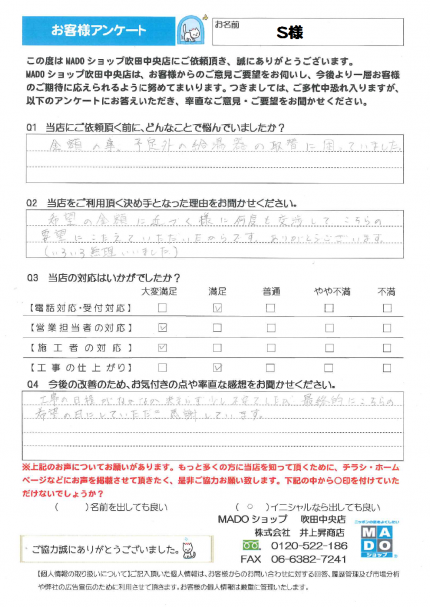 お客様アンケート
お名前
S様
この度は MADO ショップ吹田中央店にご依頼頂き、誠にありがとうございます。
MADO ショップ吹田中央店は、お客様からのご意見ご要望をお伺いし、今後より一層お客様
のご期待に応えられるように努めてまいります。つきましては、ご多忙中恐れ入りますが、
以下のアンケートにお答えいただき、率直なご意見・ご要望をお聞かせください。
Q1 当店にご依頼頂く前に、どんなことで悩んでいましたか？
金額の事、予定外の給湯器の取替に困っていました
Q2 当店をご利用頂く決め手となった理由をお聞かせください。
希望の金額に近づく様に何度も交渉して こちらの
要望にこたえていただいたからです。ありがとうございます。
(いろいろ無理いいました)
Q3 当店の対応はいかがでしたか？
大変満足 満足 普通 やや不満 不満
【電話対応・受付対応】 □ ☑ □ □ □
【営業担当者の対応】 ☑ □ □ □ □
【施工者の対応】 ☑ □ □ □ □
【工事の仕上がり】 □ ☑ □ □ □
Q4 今後の改善のため、お気付きの点や率直な感想をお聞かせください。
工事の日程がなかなか決まらず少し でしたが、最終的にこちらの
希望の日にしていただき感謝しています。
※上記のお声についてお願いがあります。もっと多くの方に当店を知って頂くために、チラシ・ホーム
ページなどにお声を掲載させて頂きたく、是非ご協力お願い致します。下記の中から〇印を付けていた
だけないでしょうか？
( )名前を出しても良い ( ○ )イニシャルなら出しても良い
MADOショップ 吹田中央店
株式会社 井上昇商店
0120-522-186
FAX 06-6382-7241
MADO
ショップ
ご協力誠にありがとうございました。
【個人情報の取り扱いについて】ご記入頂いた個人情報は、お客様からのお問い合わせに対する回答、履歴管理及び市場分析
や弊社の広告宣伝のために利用させて頂きます。お客様の個人情報は厳重に管理いたします。